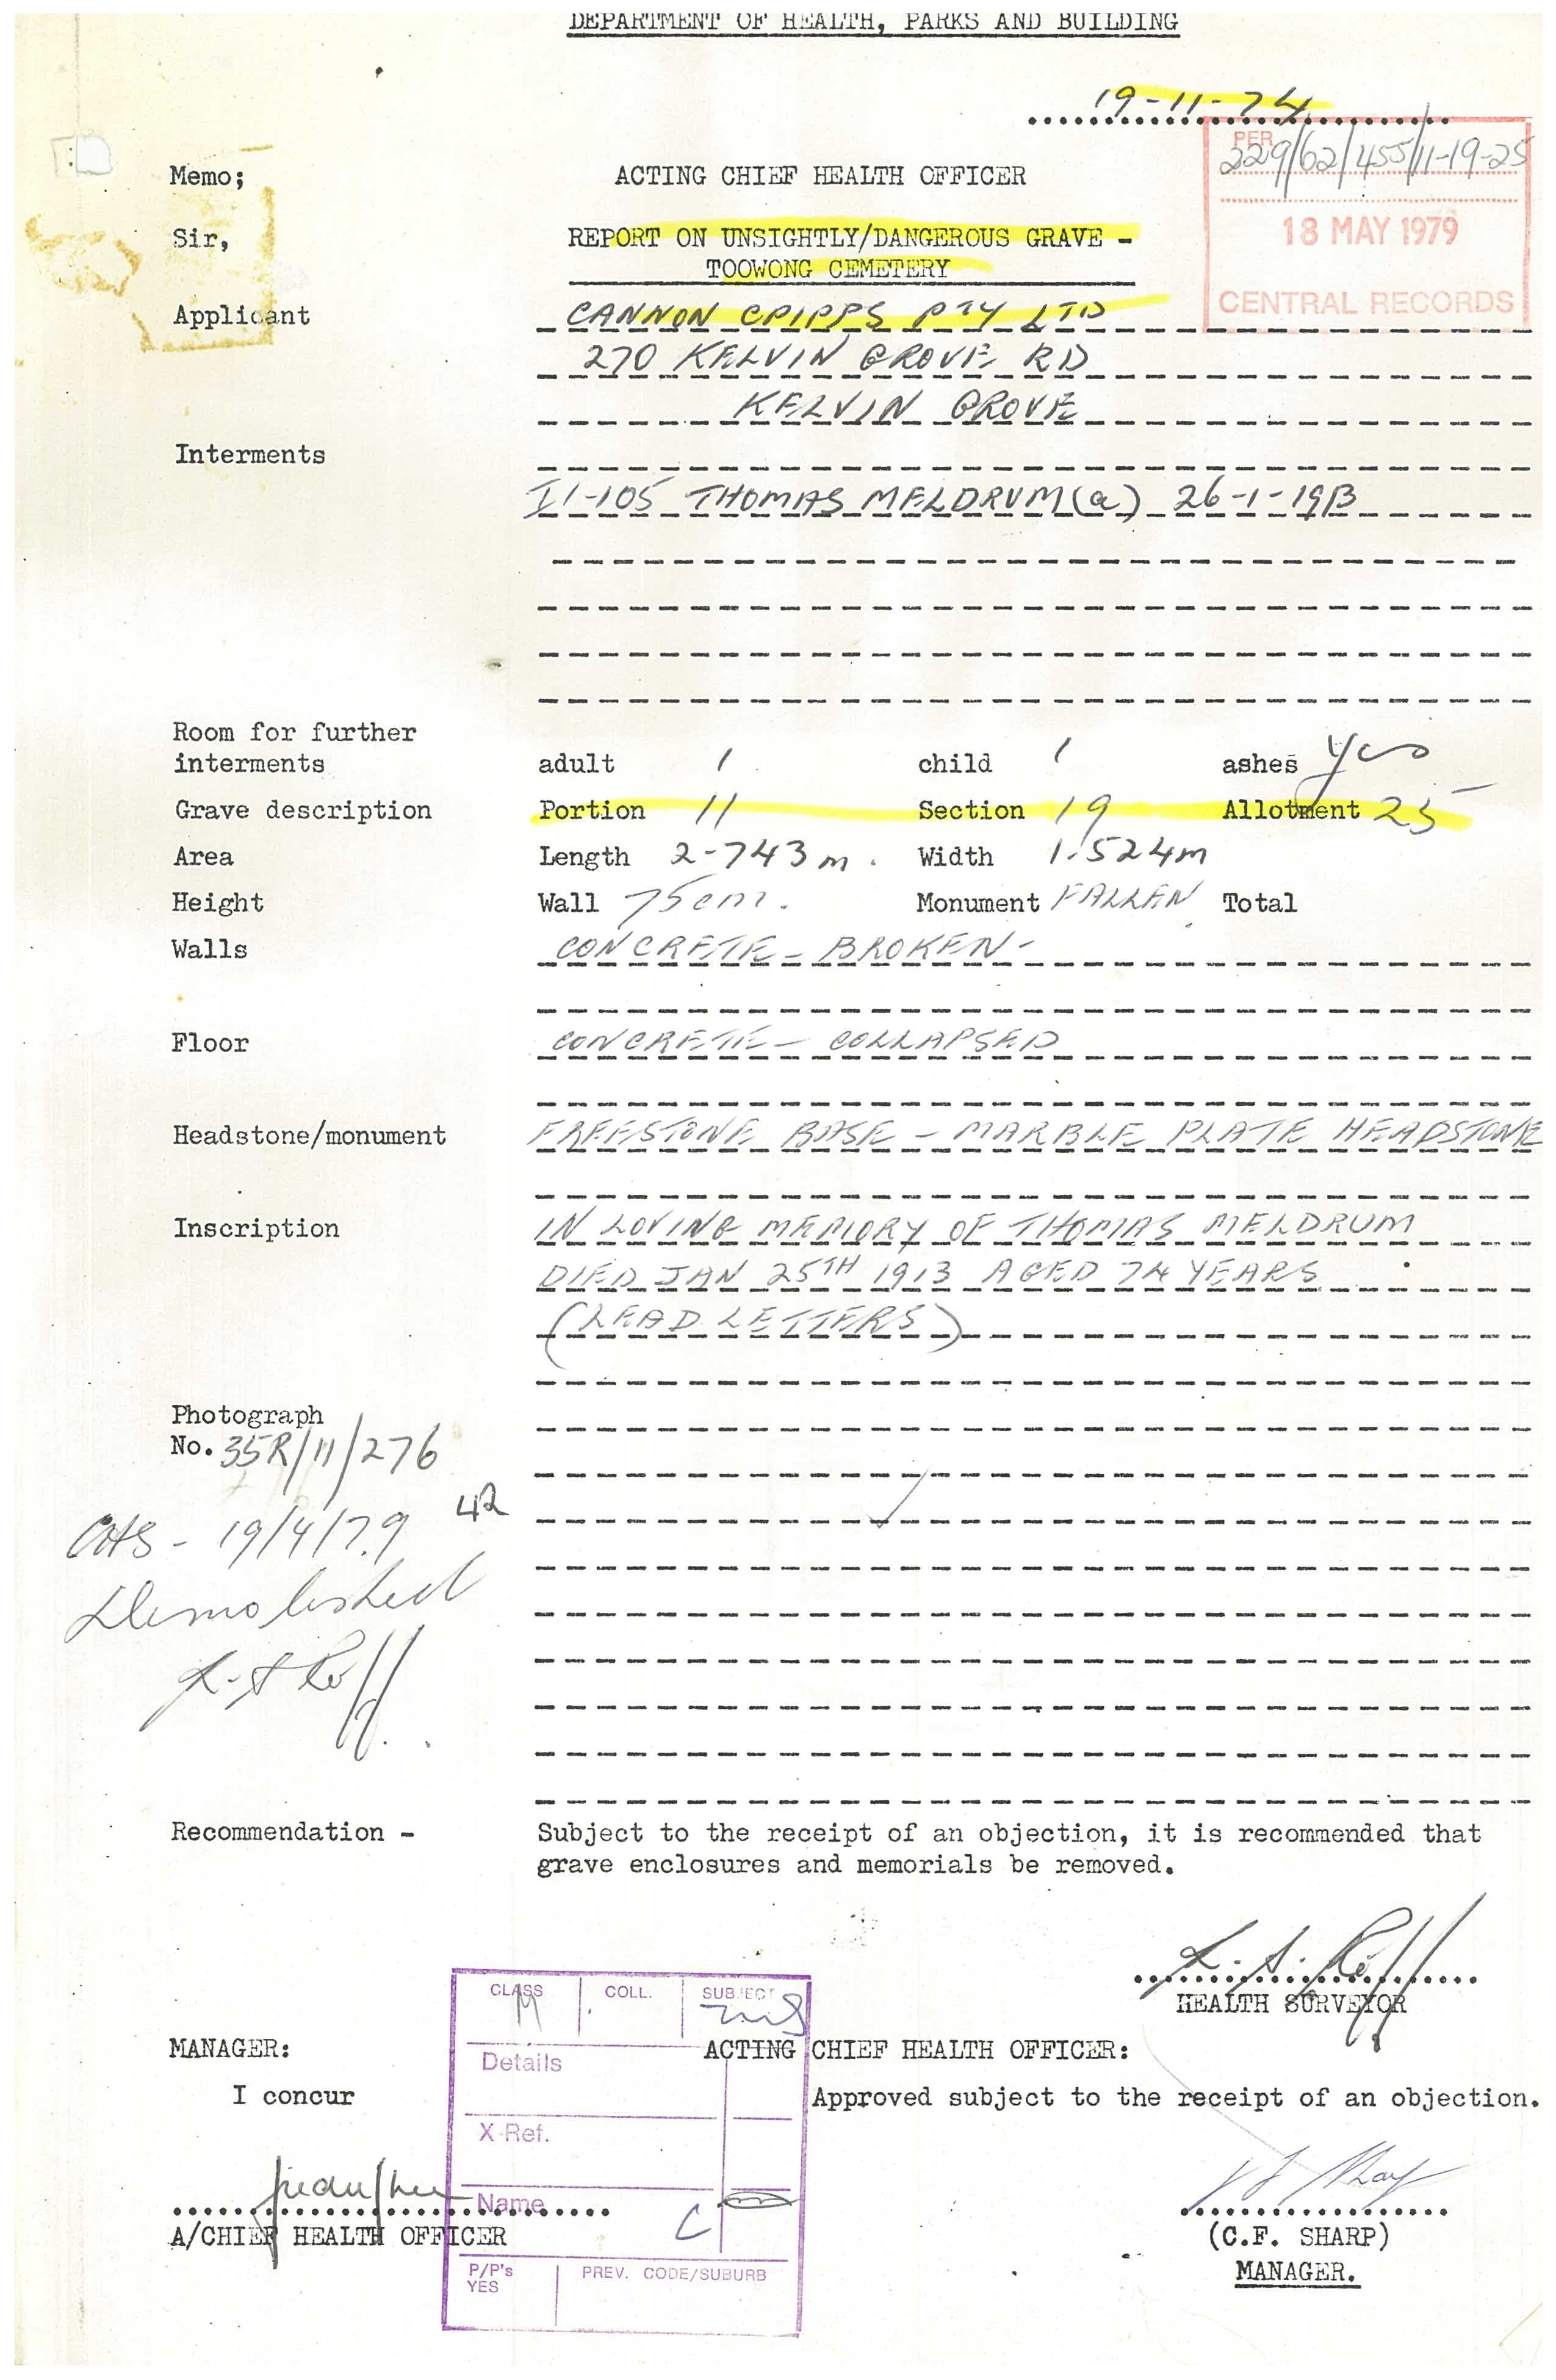 DEPARTMENT OF HEALTH, PARKS AND BUILDING
19-11-74
PER
229/62/455/11-19-25
18 MAY 1979
CENTRAL RECORDS
Memo; ACTING CHIEF HEALTH OFFICER
Sir, REPORT ON UNSIGHTLY/DANGEROUS GRAVE -
TOOWONG CEMETERY
Applicant CANNON CRIPPS PTY LTD
270 KELVIN GROVE RD
KELVIN GROVE
Interments
11-105 THOMAS MELDRUM (a) 26-1-1913
Room for further
interments adult 1 child 1 ashes yes
Grave description Portion 11 Section 19 Allotment 25
Area Length 2-743m. Width 1.524m
Height Wall 75cm. Monument FALLEN Total
Walls CONCRETE - BROKEN -
Floor CONCRETE - COLLAPSED
Headstone/monument FREESTONE BASE - MARBLE PLATE HEADSTONE
Inscription IN LOVING MEMORY OF THOMAS MELDRUM
DIED JAN 25TH 1913 AGED 74 YEARS
(LEAD LETTERS)
Photograph
No. 35R/11/276
42
19/4/79
Demolished
Recommendation - Subject to the receipt of an objection, it is recommended that
grave enclosures and memorials be removed.
HEALTH SURVEYOR
CLASS COLL. SUBJECT
M
MANAGER: ACTING CHIEF HEALTH OFFICER:
Details
I concur Approved subject to the receipt of an objection.
X-Ref.
Name
C
A/CHIEF HEALTH OFFICER (C.F. SHARP)
MANAGER.
P/P's
YES
PREV. CODE/SUBURB